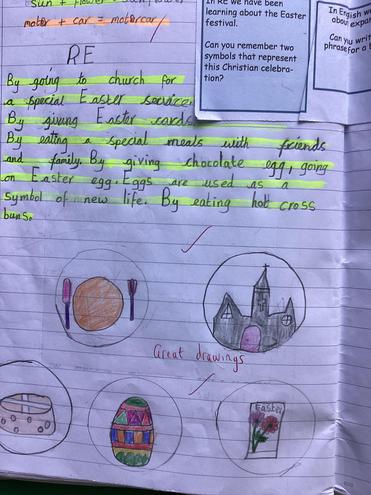 sun + flower
motor + car = motorcar
RE
By going to church for
a special Easter service.
By giving Easter cards
By eating a special meals with friends
and family. By giving chocolate egg, going
on Easter egg. Eggs are used as a
symbol of new life. By eating hot cross
buns.
Great drawings
Easter
In RE we have been
learning about the Easter
festival.
Can you remember two
symbols that represent
this Christian celebra-
tion?
In English we
about expan
Can you writ
phrase for a